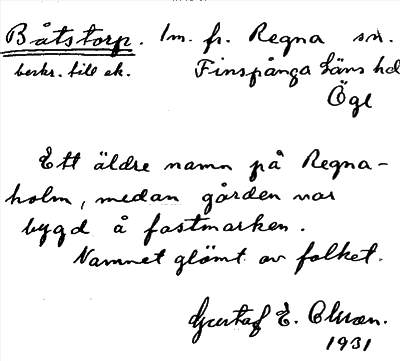 Båtstorp. 1m. fr. Regna sn.
beskr. till ek. Finspånga läns hd
Ögl
Ett äldre namn på Regna-
holm, medan gården var
bygd å fastmarken.
Namnet glömt av folket.
Gustaf E. Olsson.
1931